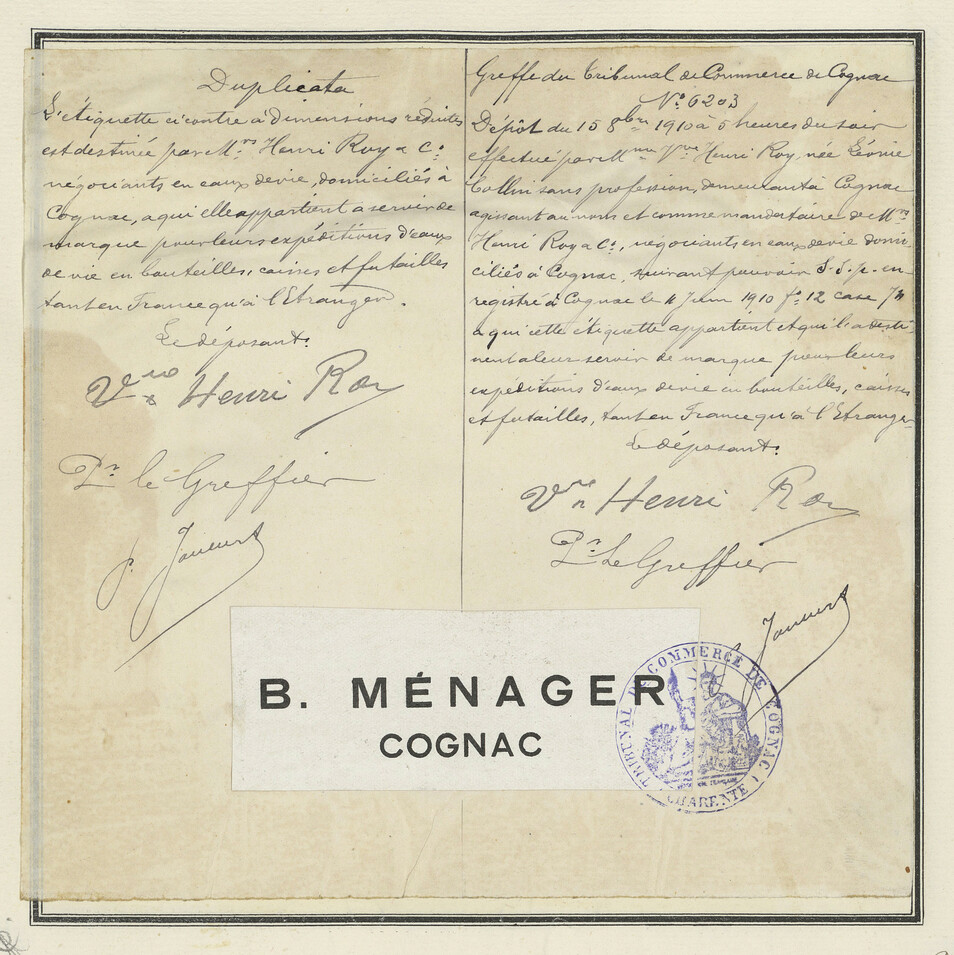 Duplicata
L'étiquette ci contre à dimensions réduites
est destinée par Mrs Henri Roy & Co
négociants en eaux de vie, domiciliés à
Cognac, a qui elle appartient a servir de
marque pour leurs expéditions d'eaux
de vie en bouteilles, caisses et futailles
tant en France qu'à l'Etranger.
Le déposant.
Vve Henri Roy
Pr le Greffier
Greffe du Tribunal de Commerce de Cognac
No 6203
Dépôt du 15 8bre 1910 à 5 heures du soir
effectué par Mme Vve Henri Roy, née Léonie
Collin sans profession, demeurant à Cognac
agissant au nom et comme mandataire de Mrs
Henri Roy & Co, négociants en eaux de vie domi-
ciliés à Cognac, suivant pouvoir S.S.p. en-
registré à Cognac le 11 Juin 1910 fo 12 case
a qui cette étiquette appartient et qui l'a desti-
nent a leur servir de marque pour leurs
expéditions d'eaux de vie en bouteilles, caisses
et futailles, tant en France qu'à l'Etranger
Le déposant.
Vve Henri Roy
Pr Le Greffier
B. MÉNAGER
COGNAC
TRIBUNAL DE COMMERCE DE COGNAC
CHARENTE